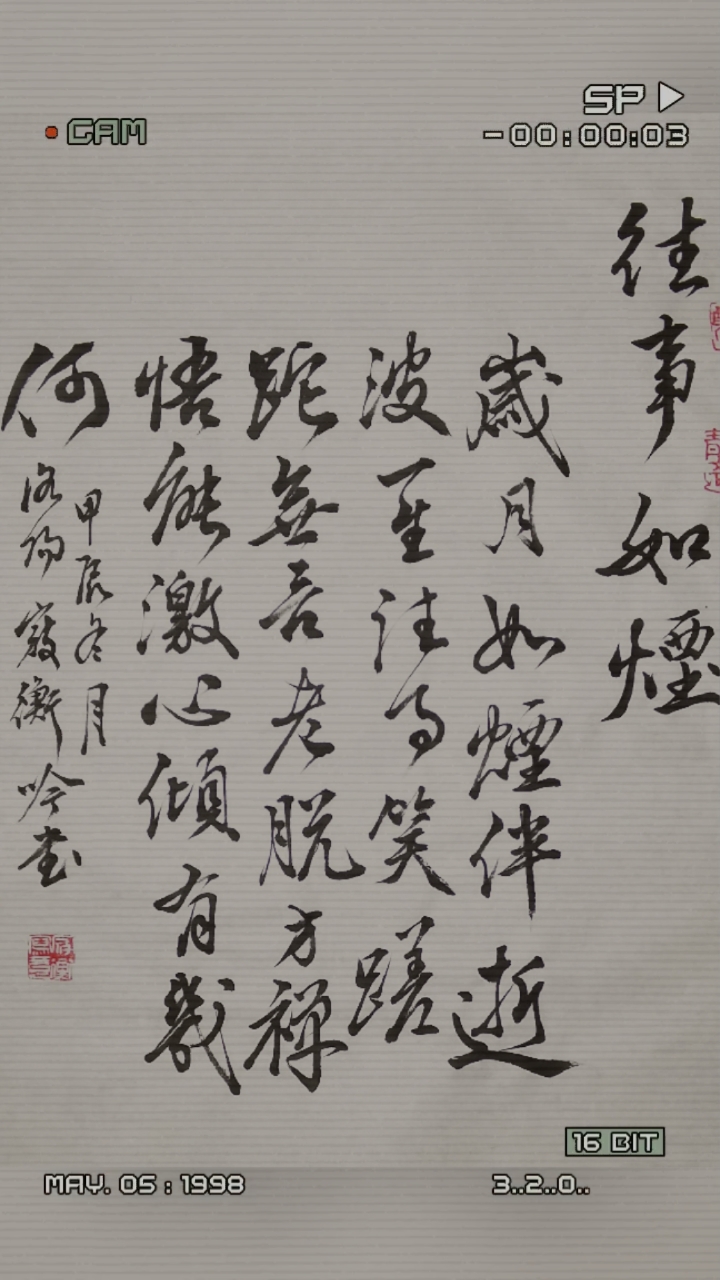 CAM
SP
-00:00:03
往事如煙
歲月如煙伴逝
波一至往事笑蹉
跎無言老脫方禪
悟能激心傾有幾
何
甲辰冬月
洛陽 衡吟書
16 BIT
MAY. 05 : 1998
3..2..0..